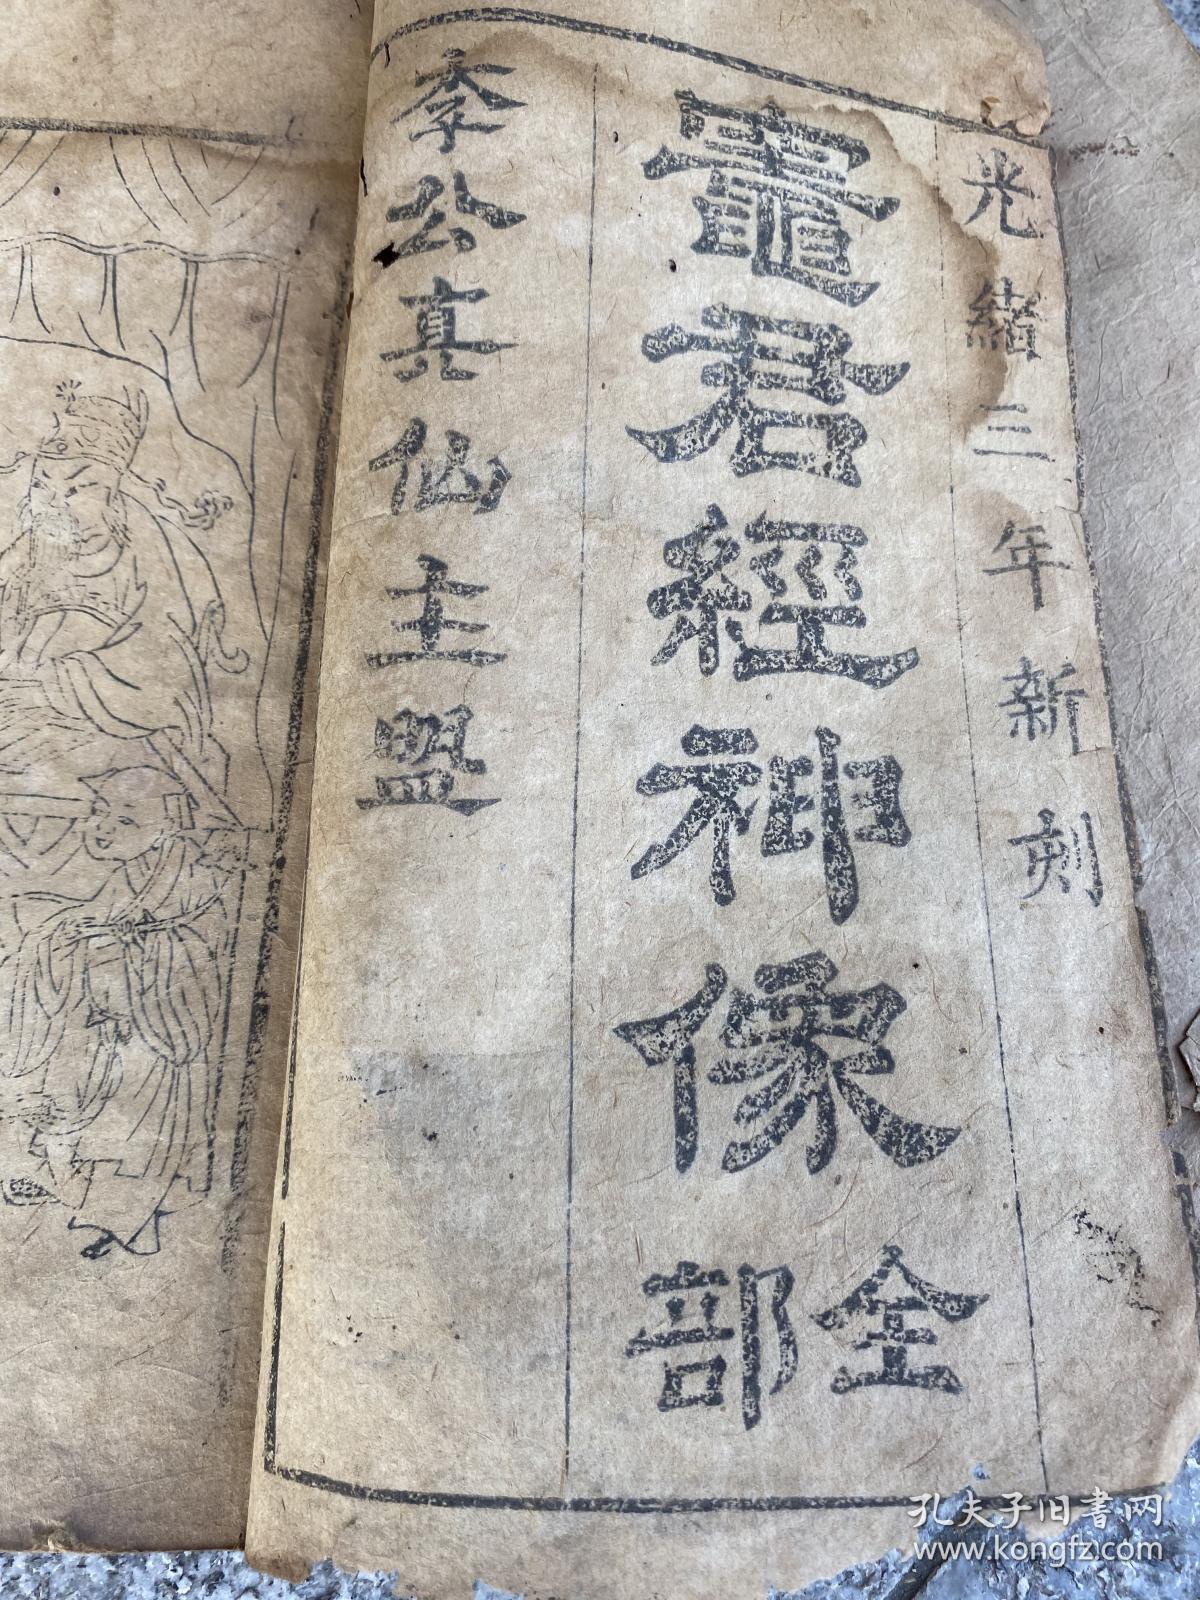 光緒三年新刻
竈君經神像全部
李公真仙主盟
孔夫子旧书网
www.kongfz.com